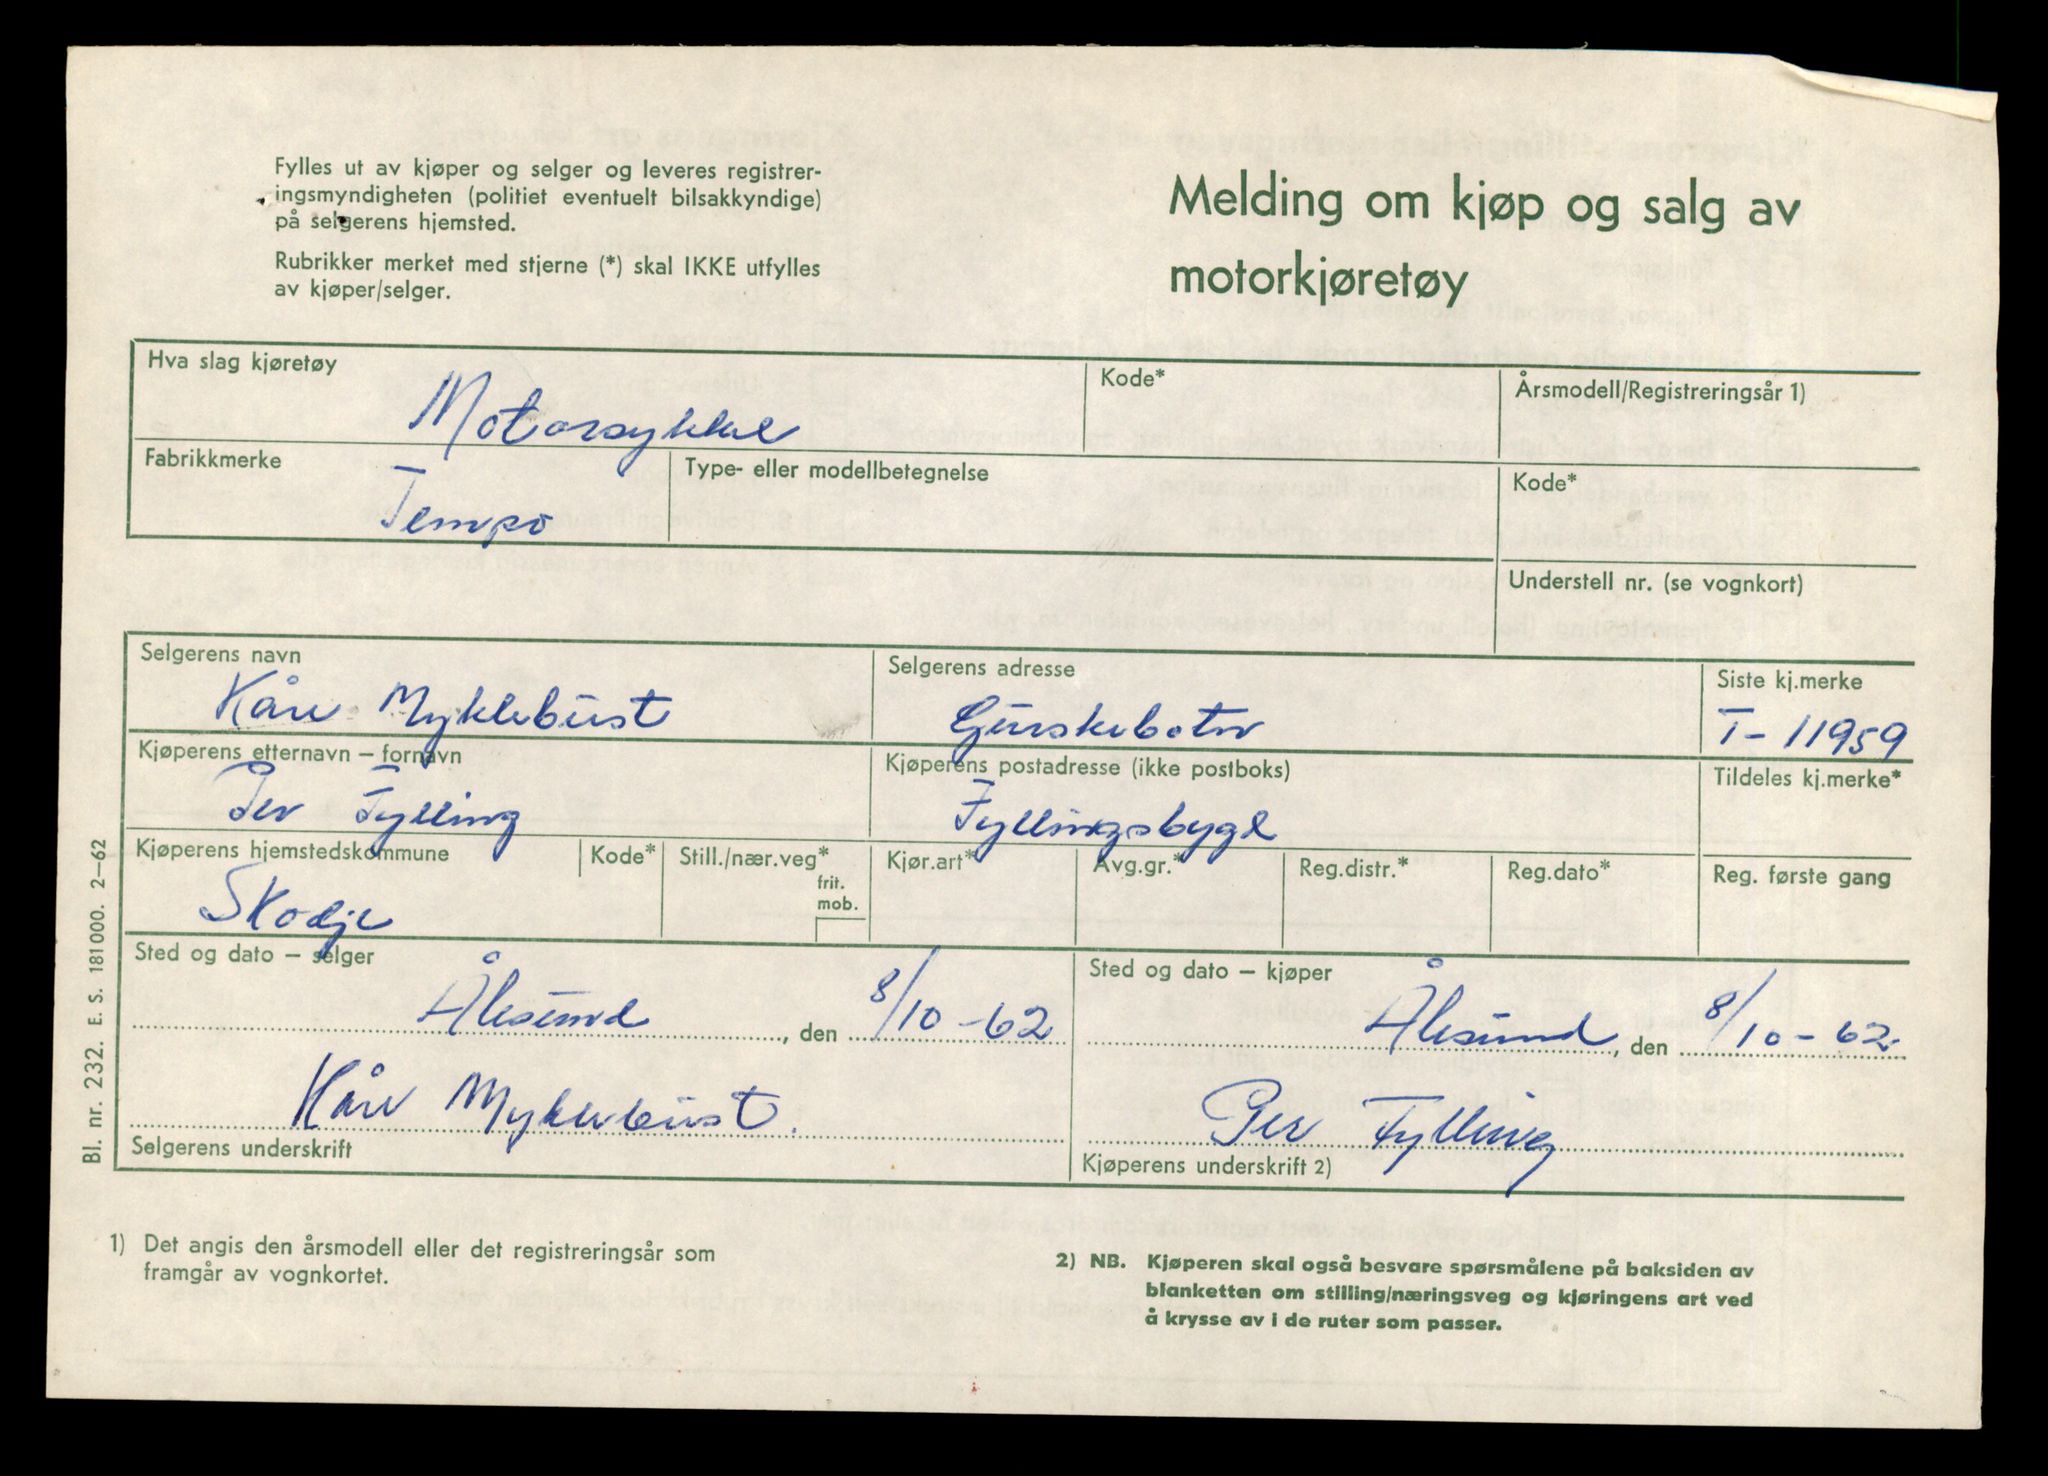 Fylles ut av kjøper og selger og leveres registrer-
ingsmyndigheten (politiet eventuelt bilsakkyndige)
på selgerens hjemsted.
Rubrikker merket med stjerne (*) skal IKKE utfylles
av kjøper/selger.
Melding om kjøp og salg av
motorkjøretøy
Hva slag kjøretøy
Motorsykkel
Kode*
Årsmodell/Registreringsår 1)
Fabrikkmerke
Tempo
Type- eller modellbetegnelse
Kode*
Understell nr. (se vognkort)
Selgerens navn
Kåre Myklebust
Selgerens adresse
Gurskebotn
Siste kj.merke
T-11959
Kjøperens etternavn – fornavn
Per Fylling
Kjøperens postadresse (ikke postboks)
Fyllingsbygd
Tildeles kj.merke*
Kjøperens hjemstedskommune
Skodje
Kode*
Still./nær.veg*
frit.
mob.
Kjør.art*
Avg.gr.*
Reg.distr.*
Reg.dato*
Reg. første gang
Sted og dato – selger
Ålesund, den 8/10-62
Kåre Myklebust.
Selgerens underskrift
Sted og dato – kjøper
Ålesund, den 8/10-62.
Per Fylling
Kjøperens underskrift 2)
Bl. nr. 232. E. S. 181000. 2–62
1) Det angis den årsmodell eller det registreringsår som
framgår av vognkortet.
2) NB. Kjøperen skal også besvare spørsmålene på baksiden av
blanketten om stilling/næringsveg og kjøringens art ved
å krysse av i de ruter som passer.